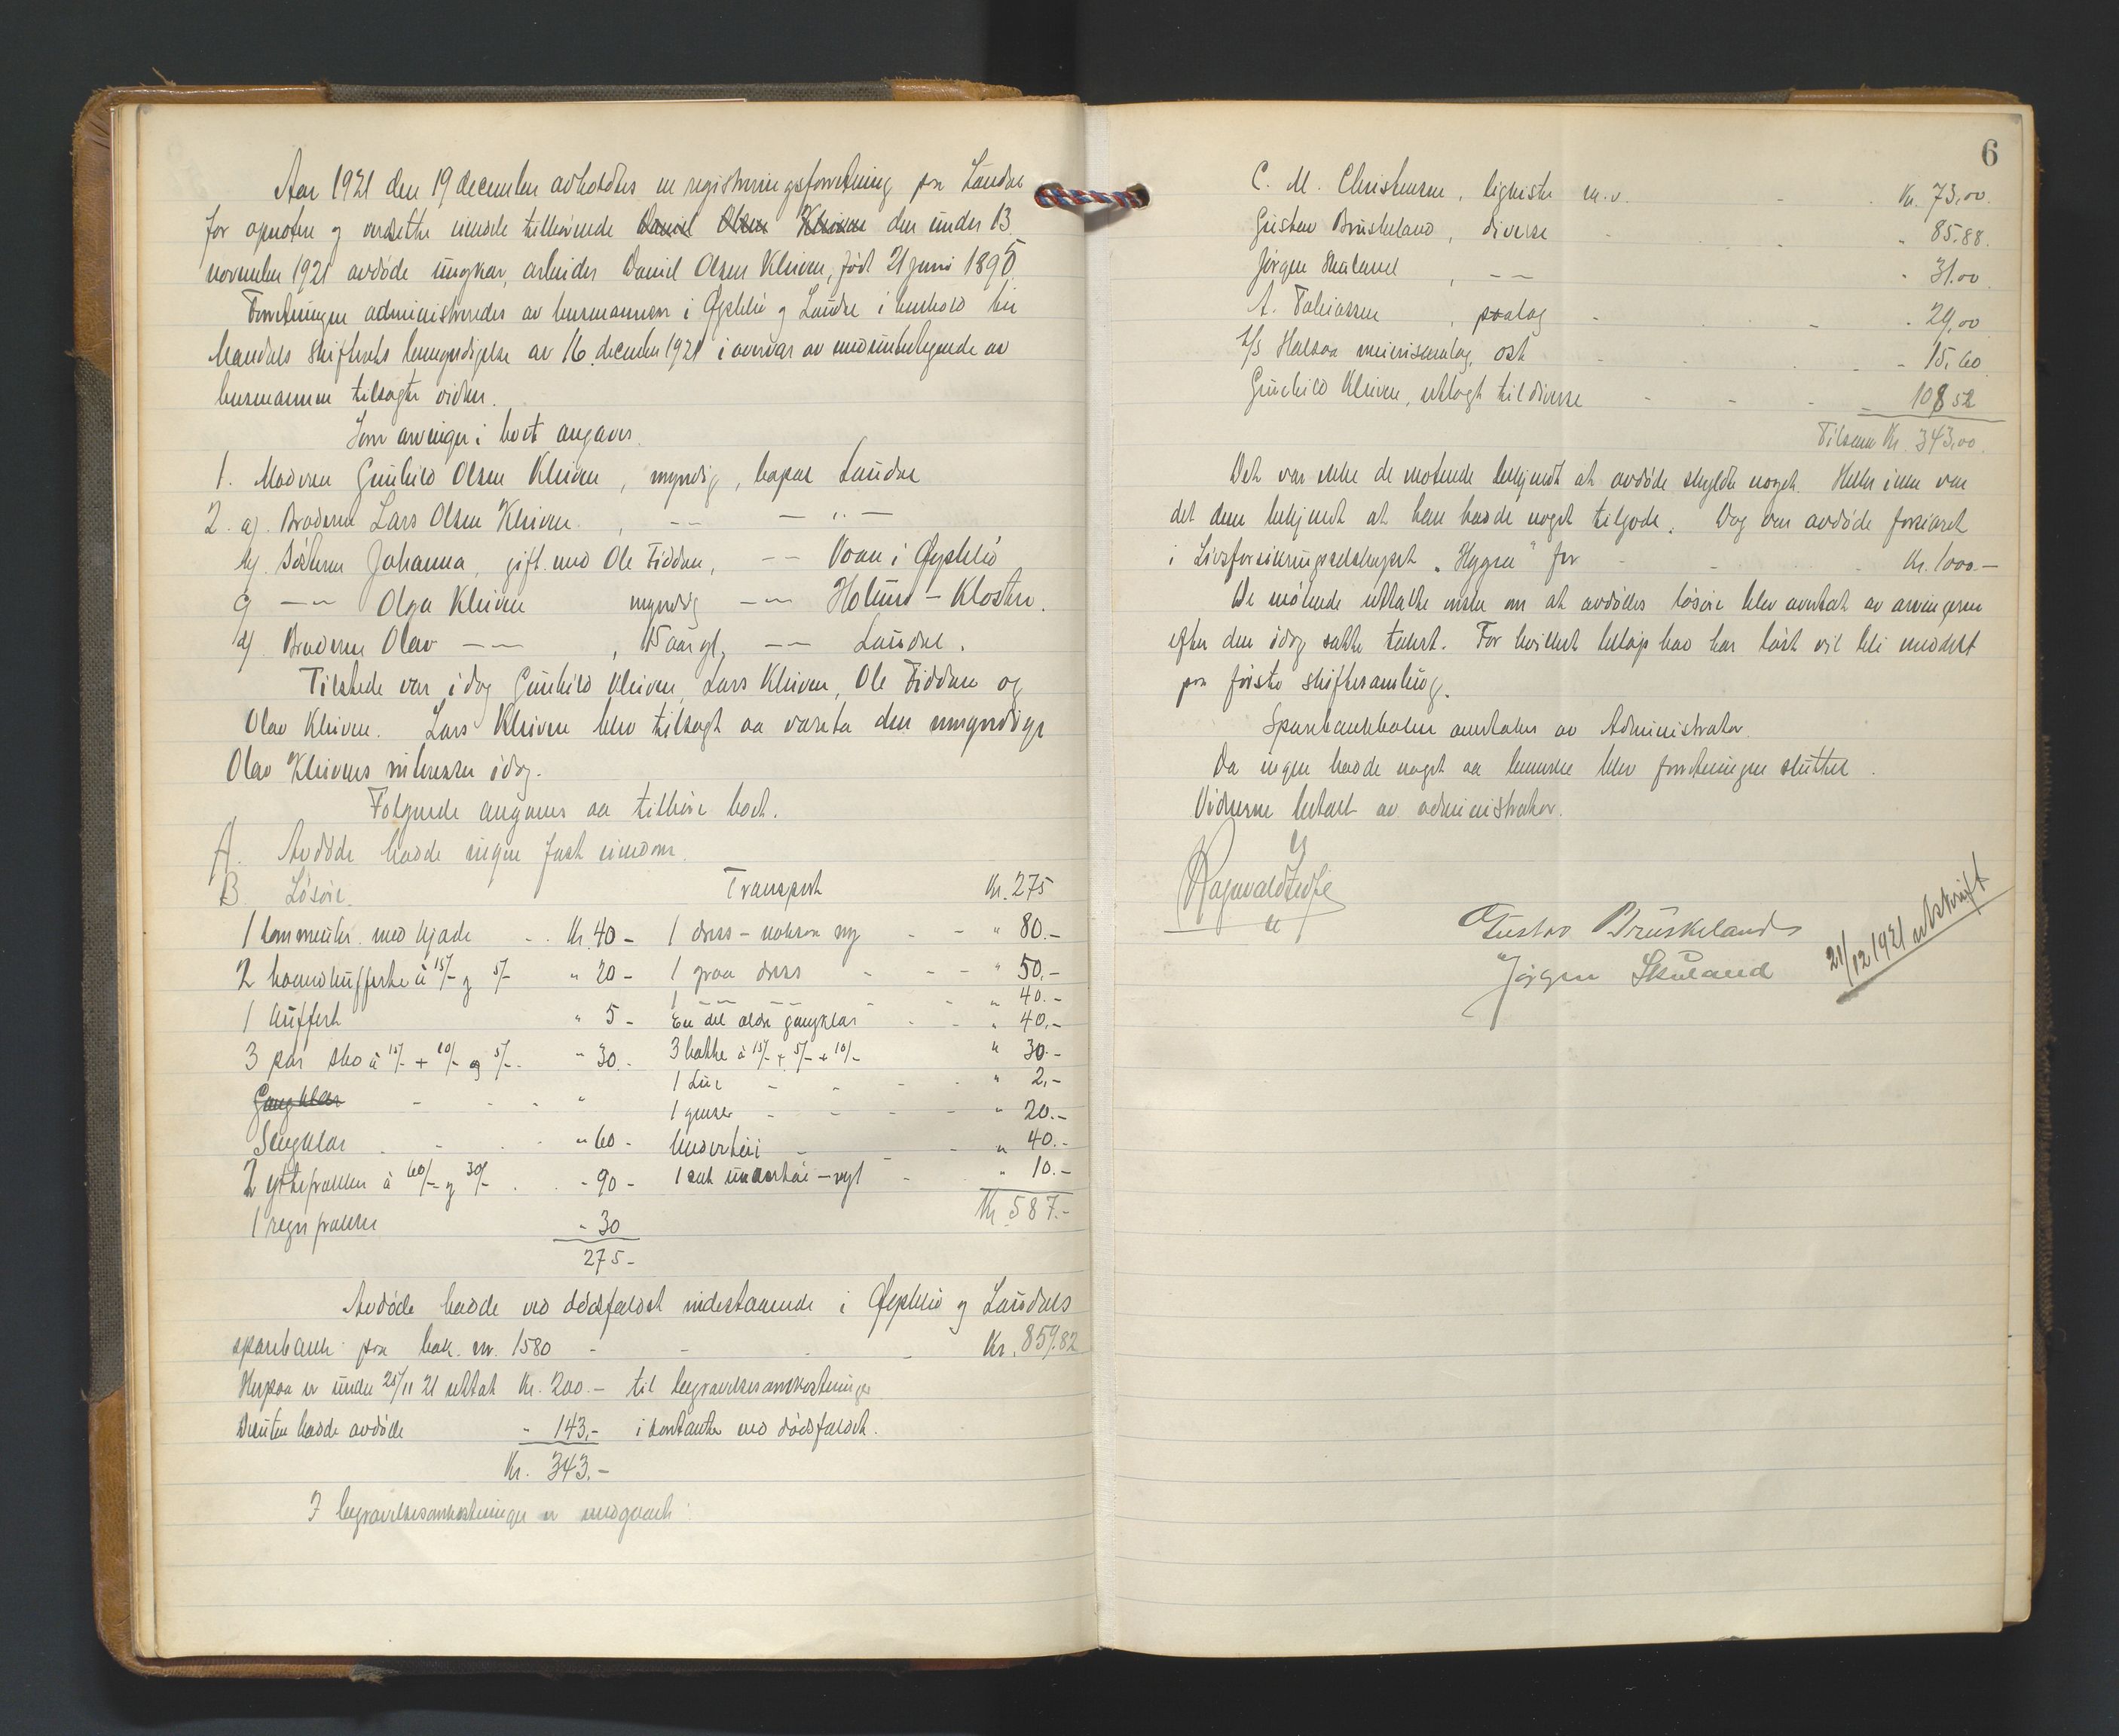 Aar 1921 den 19 december avholdtes en registreringsforretning paa Laudal
for opnoten og verdsette eiendele tilhørende Daniel Olsen Kleiven den under 13
november 1921 avdøde ungkar, arbeider Daniel Olsen Kleiven, født 21 juni 1895.
Forretningen administreredes av lensmannen i Øyslebø og Laudal i henhold til
Mandals skifterets bemyndigelse av 16. december 1921 i overvær av medundertegnede av
lensmannen tilsagte vidner.
Som arvinger i boet angaves
1. Moderen Gunhild Olsen Kleiven, myndig, bopæl Laudal
2. a). Broderen Lars Olsen Kleiven, -- — " —
b). Søsteren Johanna, gift med Ole Fiddan, -- Voan i Øyslebø
c) -- Olga Kleiven myndig -- Holum - Kloster.
d). Broderen Olav -- , 15 aar gl, -- Laudal.
Tilstede var idag Gunhild Kleiven, Lars Kleiven, Ole Fiddan og
Olav Kleiven. Lars Kleiven blev tilsagt aa vareta den umyndige
Olav Kleivens interesser idag.
Følgende angaves aa tilhøre boet.
A. Avdøde hadde ingen fast eiendom.
B. Løsøre. Transport Kr. 275
1 lommeuhr med kjæde Kr. 40 - 1 dress - noksaa ny " 80.-
2 haandkufferter à 15/- og 5/- " 20 - 1 graa dress " 50.-
1 -- -- " 40.-
1 kuffert " 5 - En del ældre gangklær " 40.-
3 par sko à 15/- + 10/- og 5/- " 30.- 3 hatte à 15/- + 5/- + 10/- " 30.-
1 lue " 2,-
Gangklær " 1 genser " 20.-
Sengklær " 60 - Undertøi " 40.-
2 ytterfrakker à 60/- og 30/- - 90 - 1 sæt undertøi - nyt " 10.-
1 regnfrakke - 30 Kr 587.-
275 -
Avdøde hadde ved dødsfaldet indestaaende i Øyslebø og Laudals
sparebank paa bok. nr. 1580 Kr. 859.82
Herpaa er under 25/11 21 uttat Kr. 200.- til begravelsesomkostninger
Desuten hadde avdøde - 143,- i kontanter ved dødsfaldet.
Kr. 343.-
I begravelsesomkostninger er medgaat:
6
C. M. Christensen, ligkiste m.v. Kr. 73,00.
Gustav Bruskeland, diverse " 85.88.
Jørgen Skuland, -- " 31.00
A. Tobiassen, paalæg - 29,00
A/S Halsaa meierisamlag, ost - 15,60
Gunhild Kleiven, utlagt til diverse 108 52
Tilsam Kr. 343,00.
Det var ikke de møtende bekjendt at avdøde skyldte noget. Heller ikke var
det dem bekjendt at han hadde noget tilgode. Dog var avdøde forsikret
i Livsforsikringsselskapet „Hygea" for Kr. 1000.—
De møtende uttalte ønske om at avdødes løsøre blev overtat av arvingerne
efter den idag satte takst. For hvilket beløp hvad har tåst vil bli meddelt
paa første skiftesamling.
Sparebankboken overtokes av Administrator
Da ingen hadde noget aa bemerke blev forretningen sluttet.
Vidnerne betalt av administrator.
Gustav Bruskeland
Jørgen Skuland
21/12 1921 utskrift